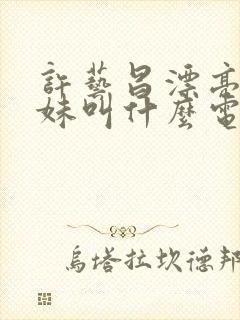 許藝昌漂亮
妹叫什麼電
烏塔拉坎德邦